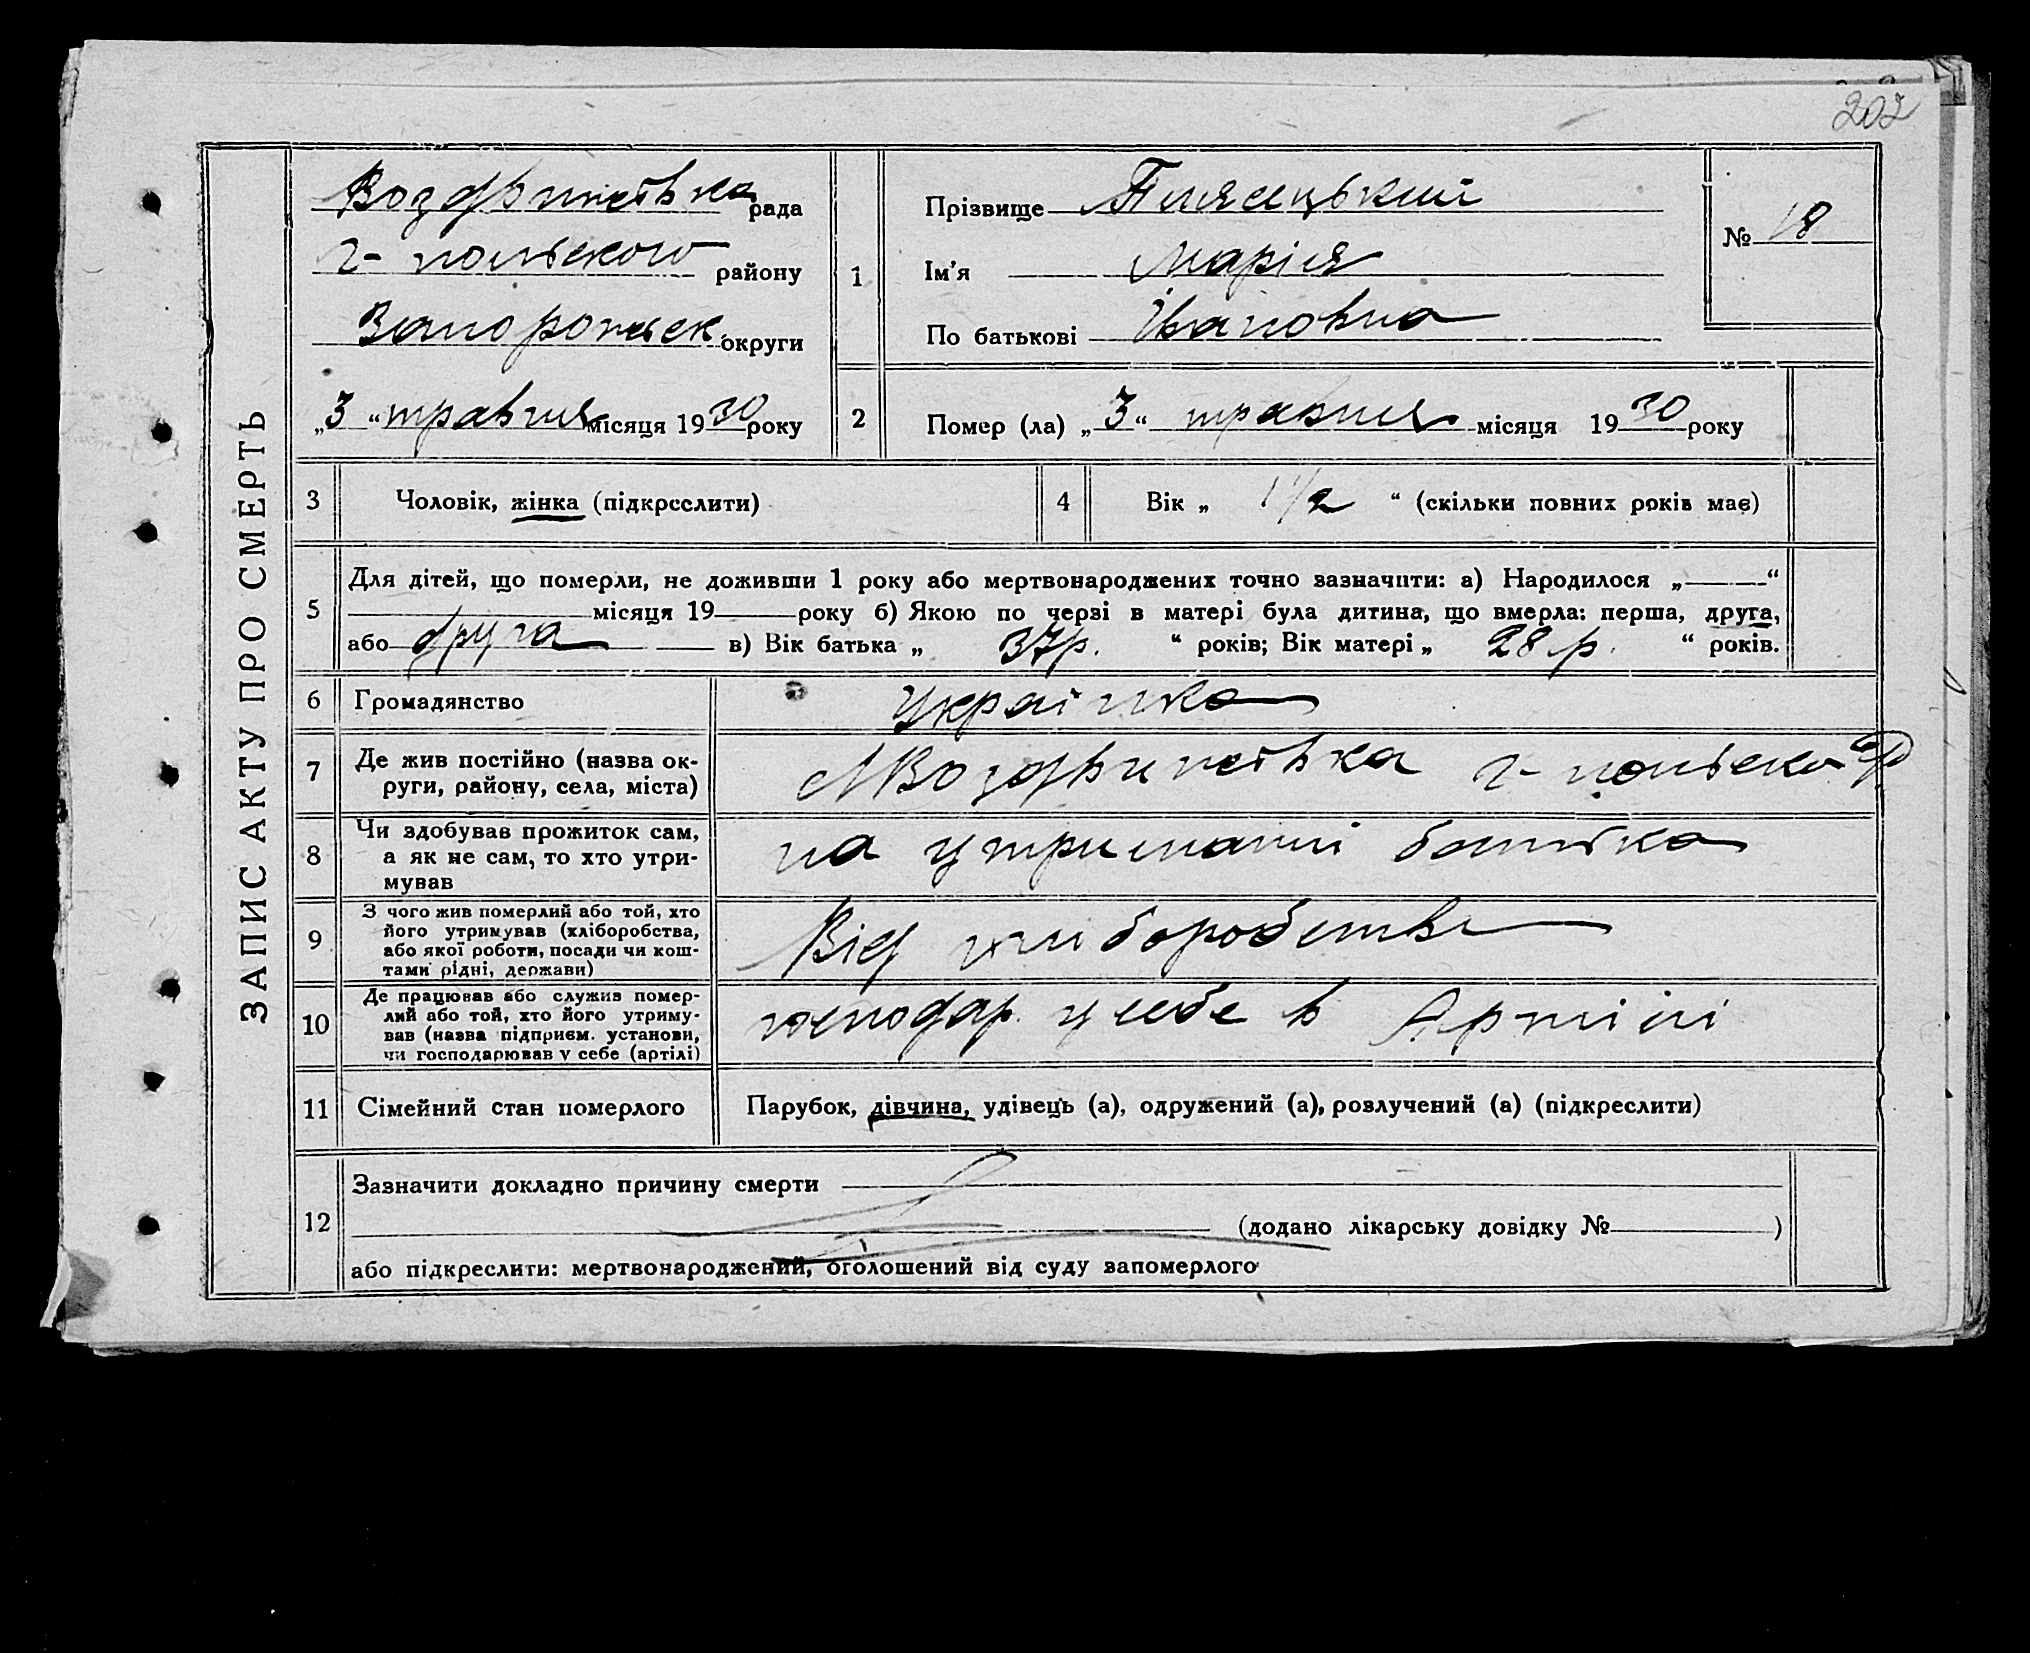 202
ЗАПИС АКТУ ПРО СМЕРТЬ
Воздвижевка рада
г-польского району
Запорожск. округи
„3“ травня місяця 1930 року
1
Прізвище Пилецький
Ім'я Марія
По батькові Івановна
№ 18
2
Помер (ла) „3“ травня місяця 1930 року
3
Чоловік, жінка (підкреслити)
4
Вік „ 1 1/2 “ (скільки повних років має)
5
Для дітей, що померли, не доживши 1 року або мертвонароджених точно зазначити: а) Народилося „ “
місяця 19 року б) Якою по черзі в матері була дитина, що вмерла: перша, друга,
або друга в) Вік батька „ 37 р. “ років; Вік матері „ 28 р. “ років.
6
Громадянство
українка
7
Де жив постійно (назва ок-
руги, району, села, міста)
Воздвижевка г-польсько р
8
Чи здобував прожиток сам,
а як не сам, то хто утри-
мував
на утриманні батька
9
З чого жив померлий або той, хто
його утримував (хліборобства,
або якої роботи, посади чи кош-
тами рідні, держави)
Від хліборобства
10
Де працював або служив помер-
лий або той, хто його утриму-
вав (назва підприєм. установи,
чи господарював у себе (артілі)
господар. у себе в Артілі
11
Сімейний стан померлого
Парубок, дівчина, удівець (а), одружений (а), розлучений (а) (підкреслити)
12
Зазначити докладно причину смерти
(додано лікарську довідку № )
або підкреслити: мертвонароджений, оголошений від суду запомерлого